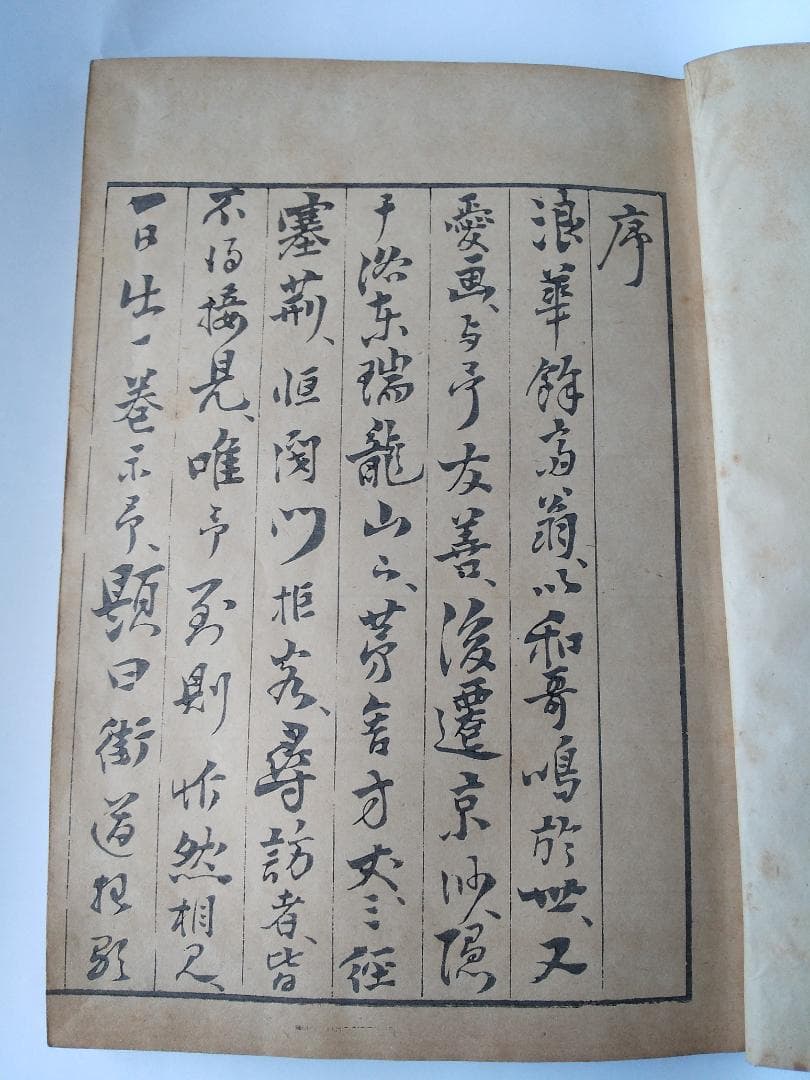 序
浪華餘斎翁、以和哥鳴於世、又
愛画、与予友善、後遷京師、隠
于洛东瑞龍山下、茅舎方丈、三径
塞荊、恒閉門拒客、尋訪者、皆
不得接見、唯予到則忻然相见、
一日出一巻示予、題曰街道狂歌